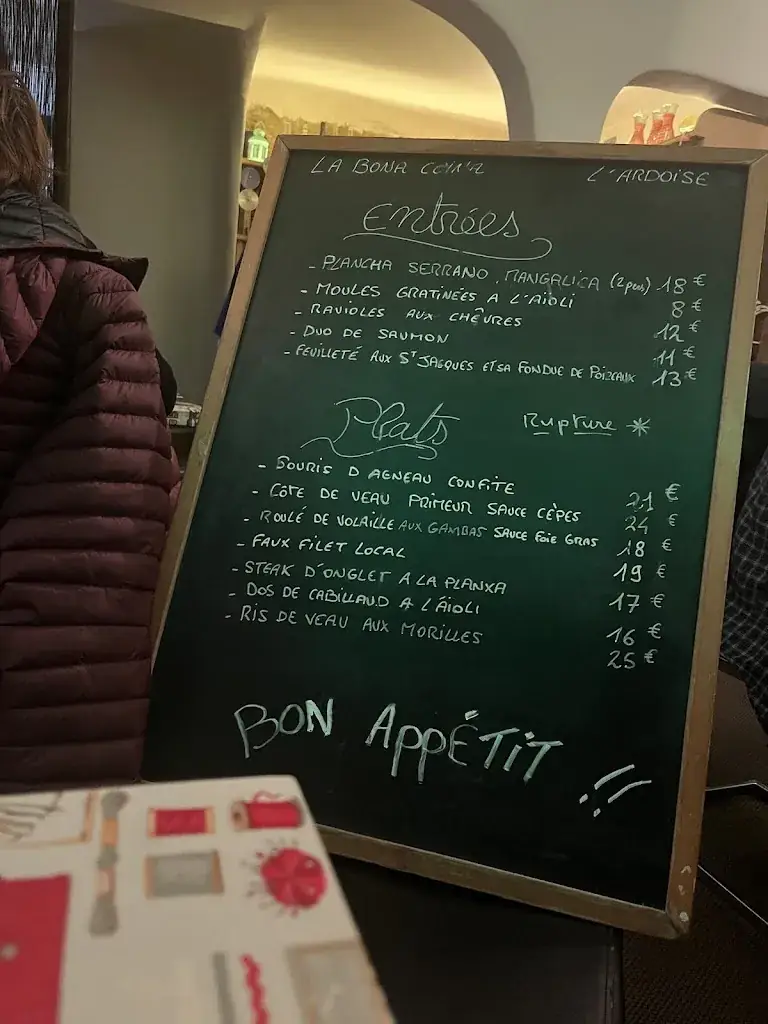 LA BONA CUIN'A L'ARDOISE
Entrées
- PLANCHA SERRANO, MANGALICA (2 pers) 18 €
- MOULES GRATINÉES A L'AIOLI 8 €
- RAVIOLES AUX CHÊVRES 12 €
- DUO DE SAUMON 11 €
- FEUILLETÉ AUX ST JACQUES ET SA FONDUE DE POIREAUX 13 €
Plats Rupture *
- SOURIS D AGNEAU CONFITE 21 €
- COTE DE VEAU PRIMEUR SAUCE CÈPES 24 €
- ROULÉ DE VOLAILLE AUX GAMBAS SAUCE FOIE GRAS 18 €
- FAUX FILET LOCAL 19 €
- STEAK D'ONGLET A LA PLANXA 17 €
- DOS DE CABILLAUD A L'ÄIOLI 16 €
- RIS DE VEAU AUX MORILLES 25 €
BON APPÉTIT !!